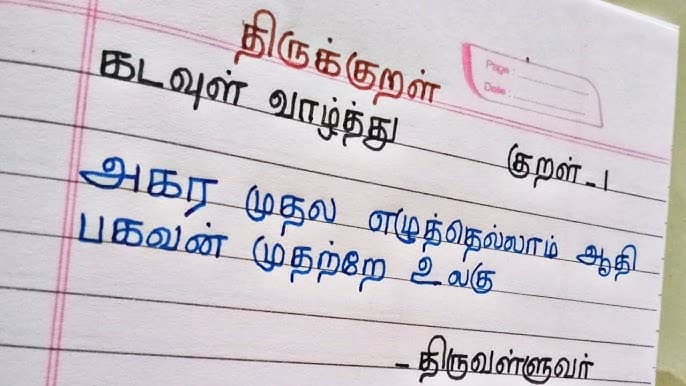 திருக்குறள்
Page :
Date :
கடவுள் வாழ்த்து
குறள் - 1
அகர முதல எழுத்தெல்லாம் ஆதி
பகவன் முதற்றே உலகு
- திருவள்ளுவர்